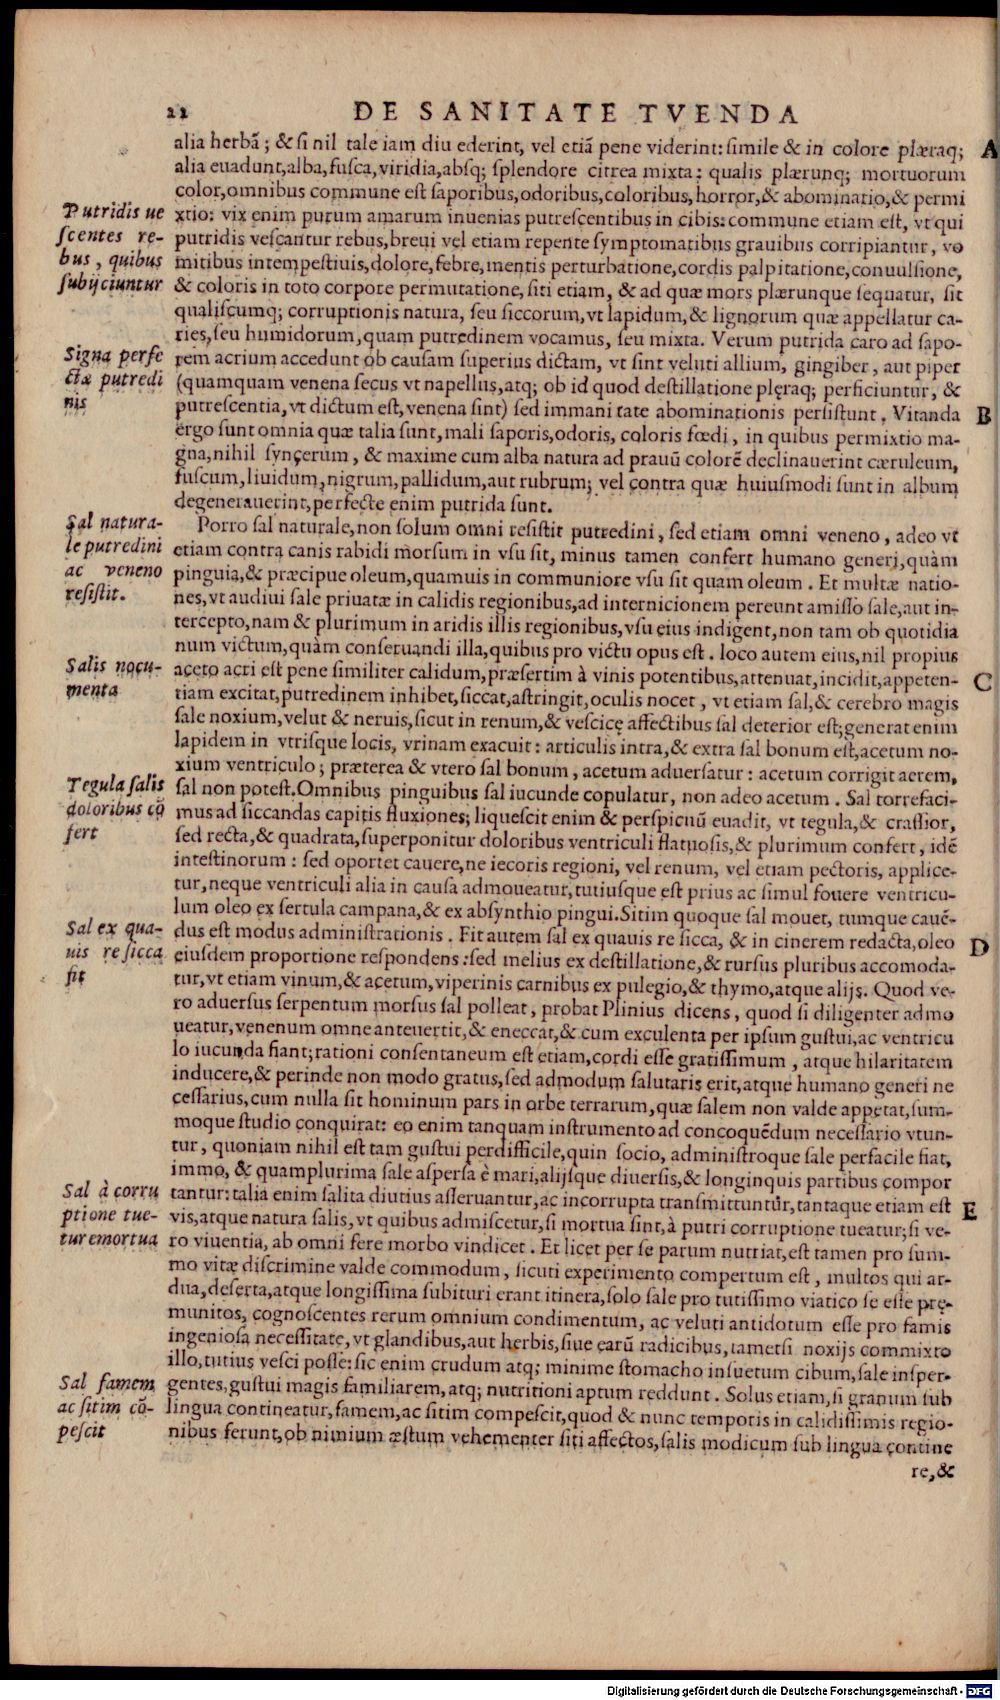 22 DE SANITATE TVENDA
alia herbã; & si nil tale iam diu ederint, vel etiã pene viderint: simile & in colore plæraq; A
alia euadunt, alba, fusca, viridia, absq; splendore citrea mixta: qualis plærunq; mortuorum
color, omnibus commune est saporibus, odoribus, coloribus, horror, & abominatio, & permi
Putridis ue
xtio: vix enim purum amarum inuenias putrescentibus in cibis: commune etiam est, vt qui
scentes re-
putridis vescantur rebus, breui vel etiam repente symptomatibus grauibus corripiantur, vo
bus, quibus
mitibus intempestiuis, dolore, febre, mentis perturbatione, cordis palpitatione, conuulsione,
subijciuntur
& coloris in toto corpore permutatione, siti etiam, & ad quæ mors plærunque sequatur, sit
qualiscumq; corruptionis natura, seu siccorum, vt lapidum, & lignorum quæ appellatur ca-
ries, seu humidorum, quam putredinem vocamus, seu mixta. Verum putrida caro ad sapo-
Signa perfe
rem acrium accedunt ob causam superius dictam, vt sint veluti allium, gingiber, aut piper
ctæ putredi
(quamquam venena secus vt napellus, atq; ob id quod destillatione plęraq; perficiuntur, &
nis
putrescentia, vt dictum est, venena sint) sed immani tate abominationis persistunt. Vitanda B
ergo sunt omnia quæ talia sunt, mali saporis, odoris, coloris fœdi, in quibus permixtio ma-
gna, nihil synçerum, & maxime cum alba natura ad prauũ colorẽ declinauerint cæruleum,
fuscum, liuidum, nigrum, pallidum, aut rubrum; vel contra quæ huiusmodi sunt in album
degenerauerint, perfecte enim putrida sunt.
Sal natura-
Porro sal naturale, non solum omni resistit putredini, sed etiam omni veneno, adeo vt
le putredini
etiam contra canis rabidi morsum in vsu sit, minus tamen confert humano generi, quàm
ac veneno
pinguia, & præcipue oleum, quamuis in communiore vsu sit quam oleum. Et multæ natio-
resistit.
nes, vt audiui sale priuatæ in calidis regionibus, ad internicionem pereunt amisso sale, aut in-
tercepto, nam & plurimum in aridis illis regionibus, vsu eius indigent, non tam ob quotidia
num victum, quàm conseruandi illa, quibus pro victu opus est. loco autem eius, nil propius
Salis nocu-
aceto acri est pene similiter calidum, præsertim à vinis potentibus, attenuat, incidit, appeten- C
menta
tiam excitat, putredinem inhibet, siccat, astringit, oculis nocet, vt etiam sal, & cerebro magis
sale noxium, velut & neruis, sicut in renum, & vesicę affectibus sal deterior est; generat enim
lapidem in vtrisque locis, vrinam exacuit: articulis intra, & extra sal bonum est, acetum no-
xium ventriculo; præterea & vtero sal bonum, acetum aduersatur: acetum corrigit aerem,
Tegula salis
sal non potest. Omnibus pinguibus sal iucunde copulatur, non adeo acetum. Sal torrefaci-
doloribus cõ
mus ad siccandas capitis fluxiones; liquescit enim & perspicuũ euadit, vt tegula, & crassior,
fert
sed recta, & quadrata, superponitur doloribus ventriculi flatuosis, & plurimum confert, idẽ
intestinorum: sed oportet cauere, ne iecoris regioni, vel renum, vel etiam pectoris, applice-
tur, neque ventriculi alia in causa admoueatur, tutiusque est prius ac simul fouere ventricu-
lum oleo ex sertula campana, & ex absynthio pingui. Sitim quoque sal mouet, tumque cauẽ-
Sal ex qua-
dus est modus administrationis. Fit autem sal ex quauis re sicca, & in cinerem redacta, oleo D
uis re sicca
eiusdem proportione respondens: sed melius ex destillatione, & rursus pluribus accomoda-
fit
tur, vt etiam vinum, & acetum, viperinis carnibus ex pulegio, & thymo, atque alijs. Quod ve-
ro aduersus serpentum morsus sal polleat, probat Plinius dicens, quod si diligenter admo
ueatur, venenum omne anteuertit, & eneccat, & cum exculenta per ipsum gustui, ac ventricu
lo iucunda fiant; rationi consentaneum est etiam, cordi esse gratissimum, atque hilaritatem
inducere, & perinde non modo gratus, sed admodum salutaris erit, atque humano generi ne
cessarius, cum nulla sit hominum pars in orbe terrarum, quæ salem non valde appetat, sum-
moque studio conquirat: eo enim tanquam instrumento ad concoquẽdum necessario vtun-
tur, quoniam nihil est tam gustui perdifficile, quin socio, administroque sale perfacile fiat,
immo, & quamplurima sale aspersa è mari, alijsque diuersis, & longinquis partibus compor
Sal à corru
tantur: talia enim salita diutius asseruantur, ac incorrupta transmittuntur, tantaque etiam est E
ptione tue-
vis, atque natura salis, vt quibus admiscetur, si mortua sint, à putri corruptione tueatur; si ve-
tur emortua
ro viuentia, ab omni fere morbo vindicet. Et licet per se parum nutriat, est tamen pro sum-
mo vitæ discrimine valde commodum, sicuti experimento compertum est, multos qui ar-
dua, deserta, atque longissima subituri erant itinera, solo sale pro tutissimo viatico se esse pręa-
munitos, cognoscentes rerum omnium condimentum, ac veluti antidotum esse pro famis
ingeniosa necessitate, vt glandibus, aut herbis, siue earũ radicibus, tametsi noxijs commixto
illo, tutius vesci posse: sic enim crudum atq; minime stomacho insuetum cibum, sale insper-
Sal famem
gentes, gustui magis familiarem, atq; nutritioni aptum reddunt. Solus etiam, si granum sub
ac sitim cõ-
lingua contineatur, famem, ac sitim compescit, quod & nunc temporis in calidissimis regio-
pescit
nibus ferunt, ob nimium æstum vehementer siti affectos, salis modicum sub lingua contine
re, &
Digitalisierung gefördert durch die Deutsche Forschungsgemeinschaft - DFG